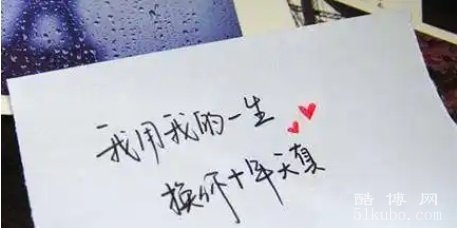 我用我的一生
换你十年天真
酷博网
51kubo.com